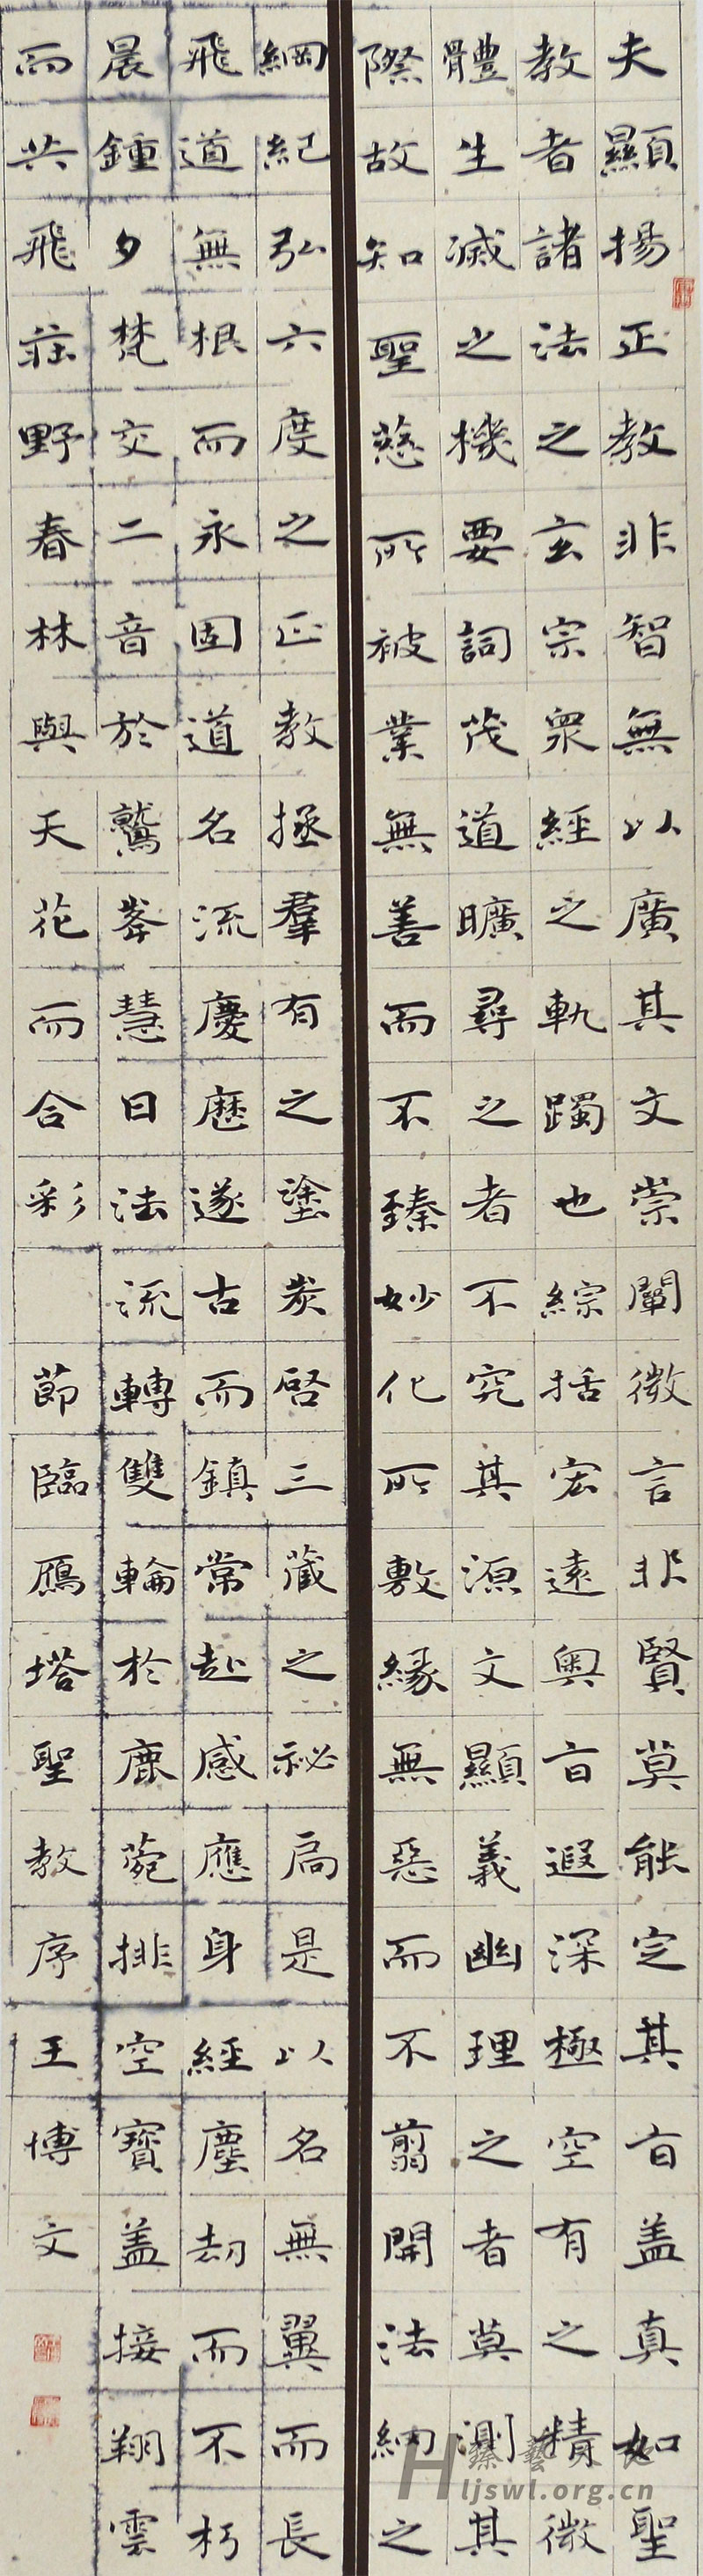 夫顯揚正教非智無以廣其文崇闡微言非賢莫能定其旨蓋真如聖
教者諸法之玄宗眾經之軌躅也綜括宏遠奧旨遐深極空有之精微
體生滅之機要詞茂道曠尋之者不究其源文顯義幽理之者莫測其
際故知聖慈所被業無善而不臻妙化所敷緣無惡而不翦開法網之
綱紀弘六度之正教拯羣有之塗炭啓三藏之祕扃是以名無翼而長
飛道無根而永固道名流慶歷遂古而鎮常赴感應身經塵劫而不朽
晨鐘夕梵交二音於鷲峯慧日法流轉雙輪於鹿菀排空寶蓋接翔雲
而共飛莊野春林與天花而合彩 節臨鴈塔聖教序王博文
ljswl.org.cn